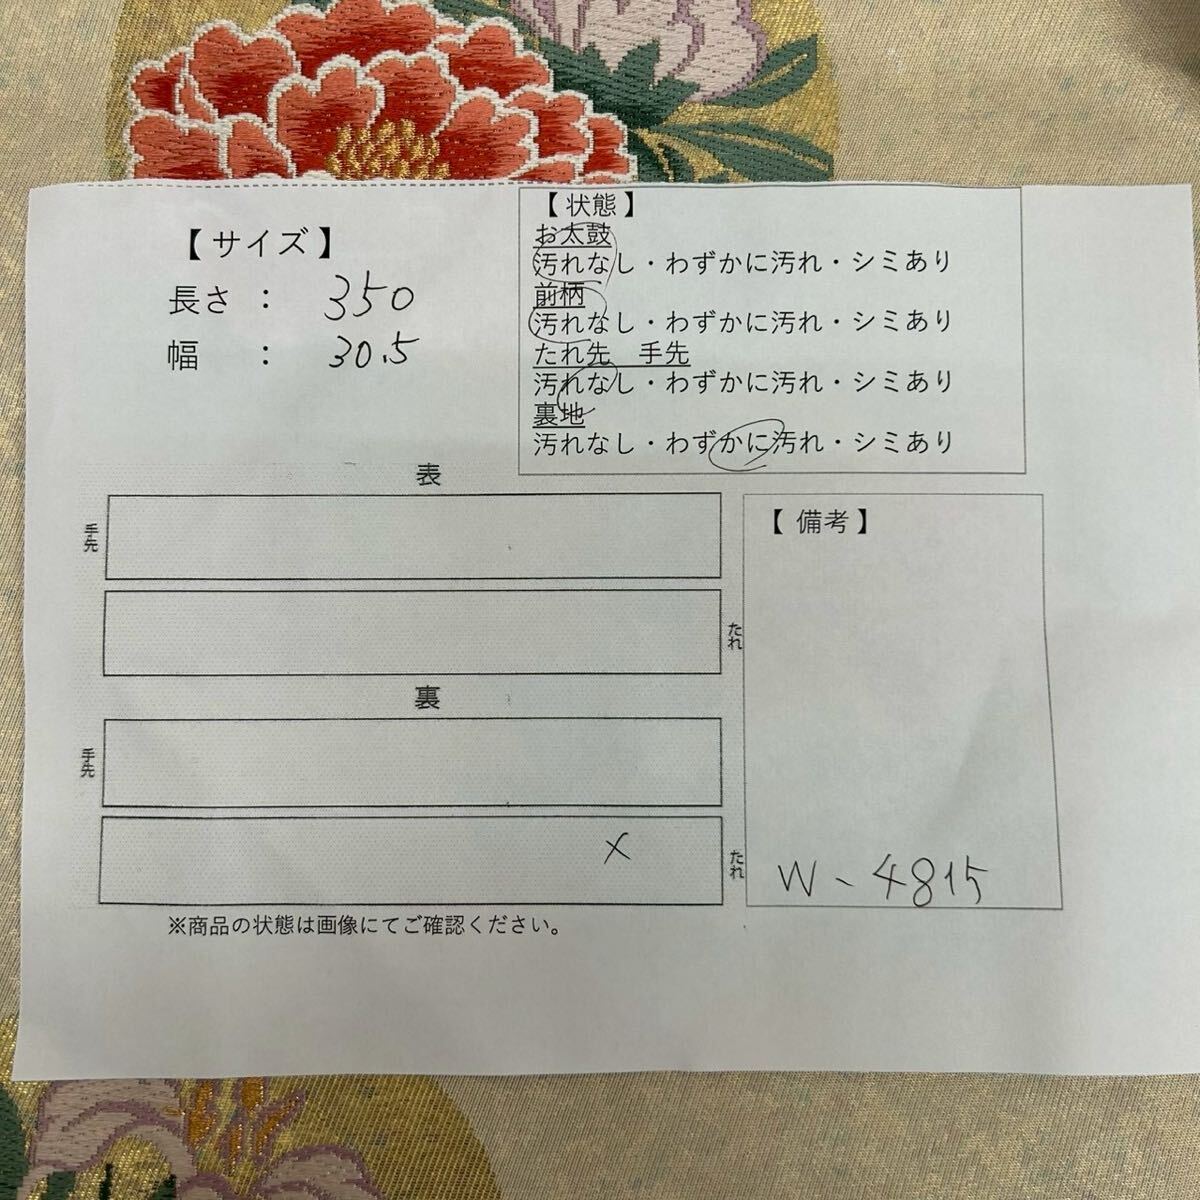 【 サイズ 】
長さ ： 350
幅 ： 30.5
【 状態 】
お太鼓
汚れなし・わずかに汚れ・シミあり
前柄
汚れなし・わずかに汚れ・シミあり
たれ先　手先
汚れなし・わずかに汚れ・シミあり
裏地
汚れなし・わずかに汚れ・シミあり
表
手先
たれ
裏
手先
×
たれ
【 備考 】
W - 4815
※商品の状態は画像にてご確認ください。